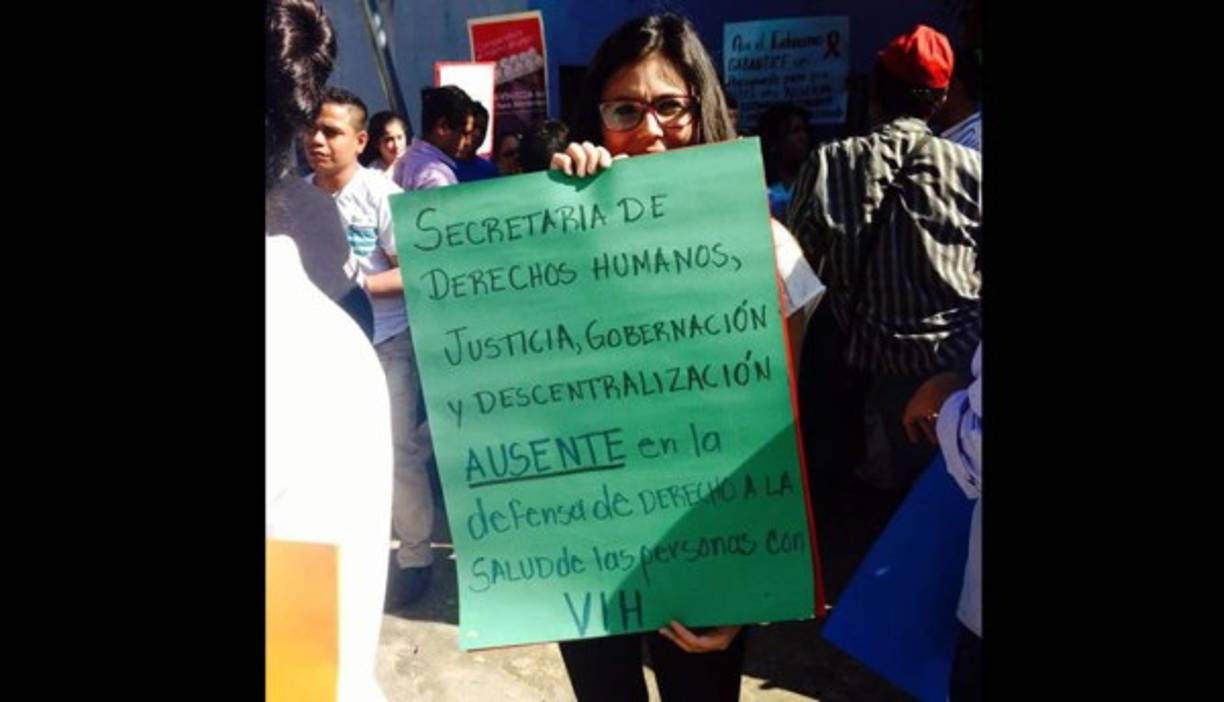 SECRETARIA DE
DERECHOS HUMANOS,
JUSTICIA, GOBERNACIÓN
Y DESCENTRALIZACIÓN
AUSENTE en la
defensa de DERECHO A LA
SALUD de las personas con
VIH
Por el Gobierno
GARANTICE un